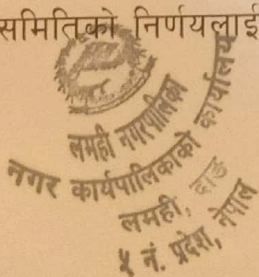 समितिको निर्णयलाई
लमही नगरपालिका
नगर कार्यपालिकाको कार्यालय
लमही, दाङ
५ नं. प्रदेश, नेपाल